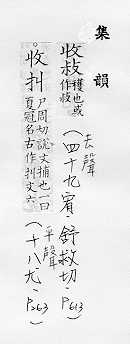 集韻
收
穫也或
作
去聲
(四十九宥.舒救切.P613)
。收
尸周切說文捕也一曰
夏冠名古作 文六
平聲
(十八尤.P263)